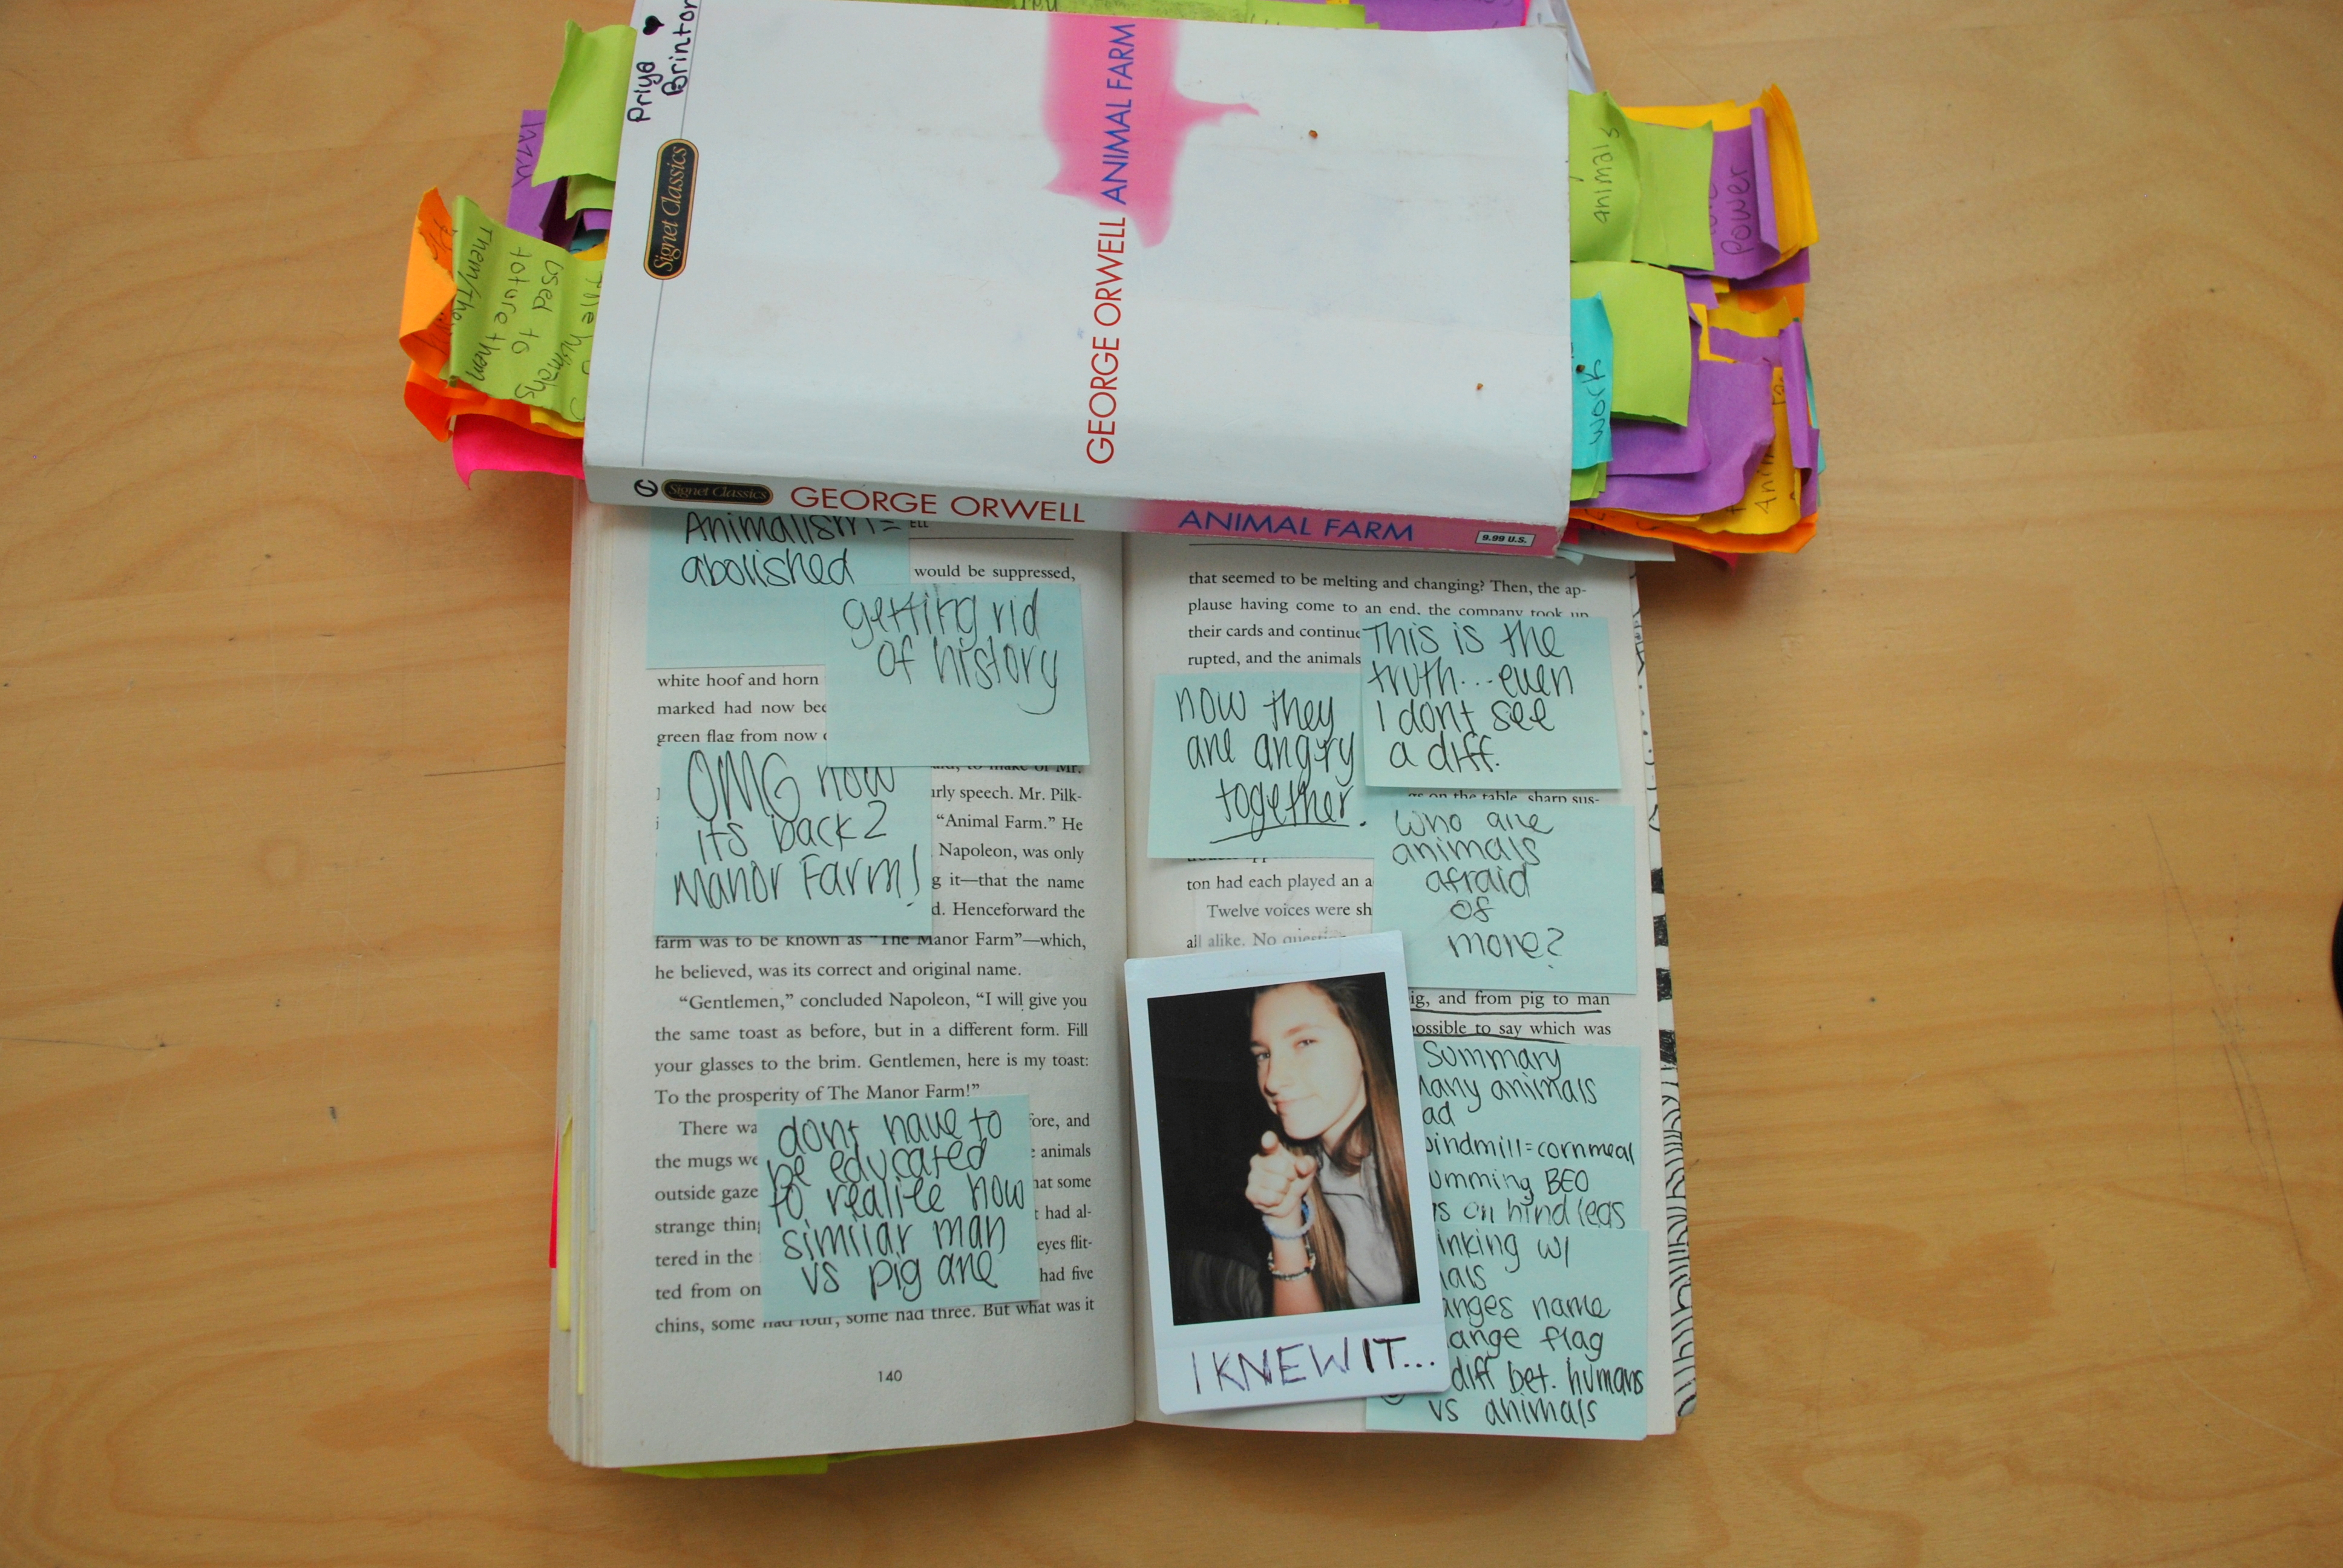 Priya ♥
Brinton
Signet Classics
GEORGE ORWELL ANIMAL FARM
Signet Classics GEORGE ORWELL ANIMAL FARM
9.99 U.S.
used to
toture them
animals
Power
work
Animalism =
abolished
would be suppressed,
getting rid
of history
white hoof and horn
marked had now
green flag from now
OMG now
its back 2
Manor Farm!
to make of Mr.
speech. Mr. Pilk-
“Animal Farm.” He
Napoleon, was only
it—that the name
Henceforward the
farm was to be known as “The Manor Farm”—which,
he believed, was its correct and original name.
“Gentlemen,” concluded Napoleon, “I will give you
the same toast as before, but in a different form. Fill
your glasses to the brim. Gentlemen, here is my toast:
To the prosperity of The Manor Farm!”
There
and
the mugs
animals
outside
some
strange
had al-
tered in the
eyes flit-
ted from
had five
chins, some had four, some had three. But what was it
dont have to
be educated
to realize how
similar man
vs pig are
140
that seemed to be melting and changing? Then, the ap-
plause having come to an end, the company took up
their cards and
rupted, and the animals
This is the
truth...even
I dont see
a diff.
now they
are angry
together.
on the table, sharp sus-
who are
animals
afraid
of
more?
ton had each played an
Twelve voices were
all alike. No
and from pig to man
to say which was
Summary
animals
=cornmeal
BEO
on hind legs
w/
name
flag
diff bet. humans
vs animals
I KNEW IT...